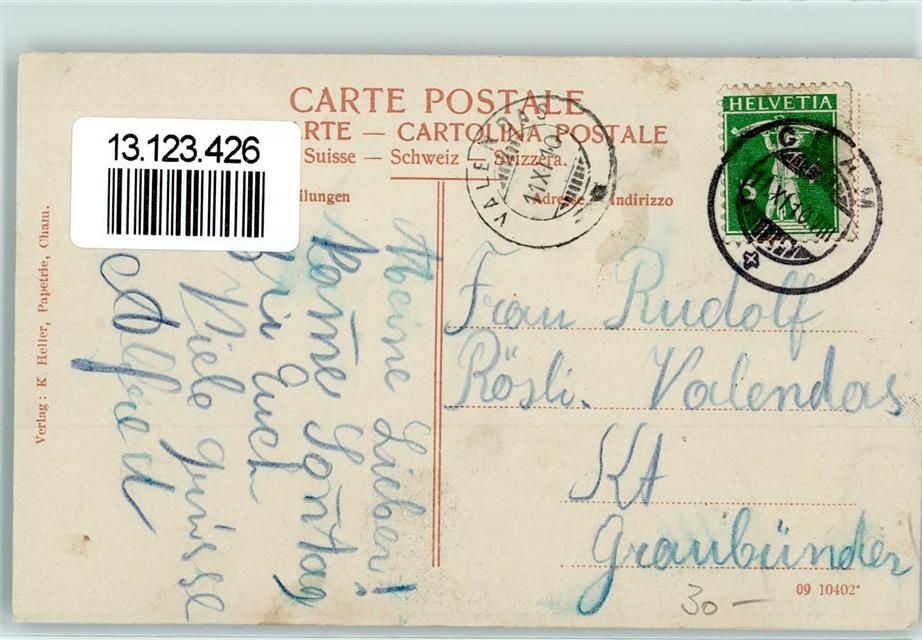 CARTE POSTALE
ARTE — CARTOLINA POSTALE
Suisse — Schweiz — Svizzera.
13.123.426
ilungen
Adresse Indirizzo
HELVETIA
5
VALENDAS
11.XI.10
CHAM
XI.10
Verlag: K Heller, Papetrie, Cham.
Meine Lieben!
Komme Sontag
Euch
Viele Grüsse
Alfred
Frau Rudolf
Rösli. Valendas
Kt
Graubünden
09 10402*
30 —